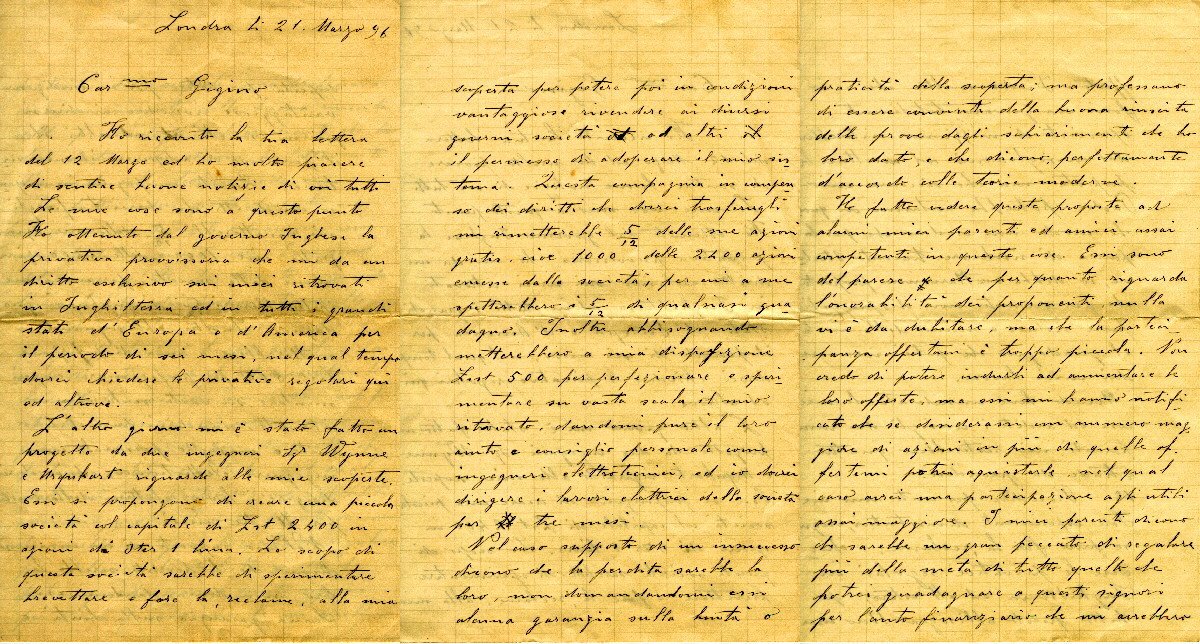 Londra li 21. Marzo 96
Car mo Gigino
Ho ricevuto la tua lettera
del 12 Marzo ed ho molto piacere
di sentire buone notizie di voi tutti
Le mie cose sono a questo punto
Ho ottenuto dal governo Inglese la
privativa provvisoria che mi da un
diritto esclusivo sui miei ritrovati
in Inghilterra ed in tutti i grandi
stati d'Europa e d'America per
il periodo di sei mesi, nel qual tempo
dovrei chiedere le privative regolari qui
ed altrove.
L'altro giorno mi è stato fatto un
progetto da due ingegneri Sgr Wynne
e Urquhart riguardo alle mie scoperte.
Essi si propongono di creare una piccola
società col capitale di Lst 2400 in
azioni di Ster 1 l'una. Lo scopo di
questa società sarebbe di sperimentare
brevettare e fare la reclame, alla mia
scoperta per potere poi in condizioni
vantaggiose rivendere ai diversi
governi, società ed ad altri
il permesso di adoperare il mio sis-
tema. Questa compagnia in compen-
so dei diritti che dovrei trasferirgli
mi rimetterebbe 5/12 delle sue azioni
gratis, cioè 1000 delle 2400 azioni
emesse dalla società, per cui a me
spetterebbero i 5/12 di qualsiasi gua-
dagno. Inoltre abbisognando
metterebbero a mia disposizione
Lst 500 per perfezionare e speri-
mentare su vasta scala il mio
ritrovato, dandomi pure il loro
aiuto e consiglio personale come
ingegneri elettrotecnici, ed io dovrei
dirigere i lavori elettrici della società
per tre mesi.
Nel caso supposto di un insuccesso
dicono che la perdita sarebbe la
loro, non domandandomi essi
alcuna garanzia sulla bontà o
praticità della scoperta; ma professano
di essere convinti della buona riuscita
delle prove dagli schiarimenti che ho
loro dato, e che dicono, perfettamente
d'accordo colle teorie moderne.
Ho fatto vedere queste proposte ad
alcuni miei parenti ed amici assai
competenti in queste cose. Essi sono
del parere che per quanto riguarda
l'onorabilità dei proponenti nulla
vi è da dubitare, ma che la parteci-
panza offertami è troppo piccola. Non
credo di potere indurli ad aumentare le
loro offerte, ma essi mi hanno notifi-
cato che se desiderassi un numero mag-
giore di azioni in più di quelle of-
fertemi potrei aquistarle nel qual
caso avrei una partecipazione agli utili
assai maggiore. I miei parenti dicono
che sarebbe un gran peccato di regalare
più della metà di tutto quello che
potrei guadagnare a questi signori
per l'aiuto finanziario che mi avrebbero